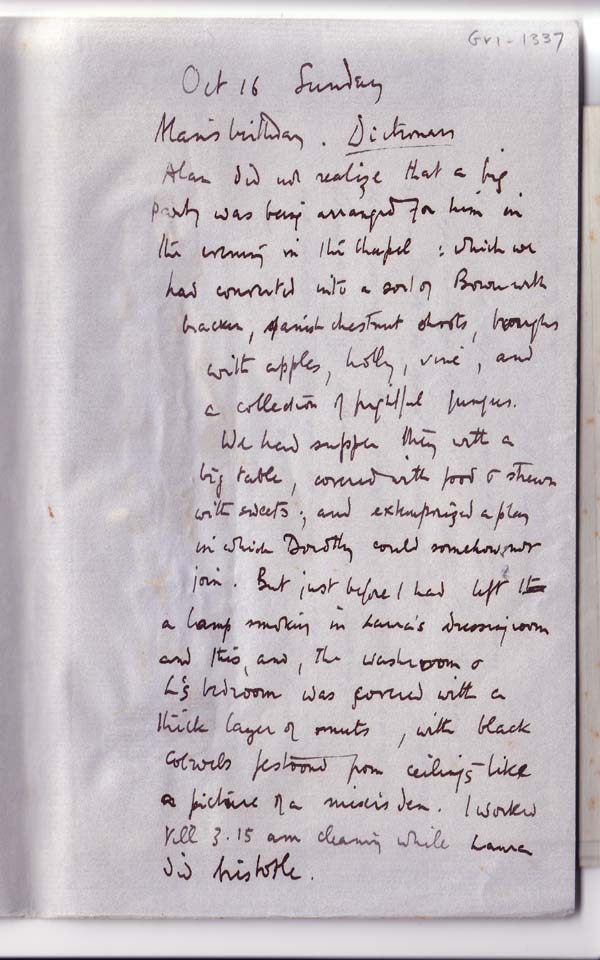 Gr1-1337
Oct 16 Sunday
Alan's birthday. Dictionary
Alan did not realize that a big
party was being arranged for him in
the evening in the Chapel : which we
had converted into a sort of Bower with
bracken, spanish chestnut shoots, boughs
with apples, holly, vine, and
a collection of frightful fungus.
We had supper with a
big table, covered with food & strewn
with sweets; and extemporized a play
in which Dorothy could somehow not
join. But just before I had left
a lamp smoking in Laura's dressing room
and this, and, the washroom &
L's bedroom was covered with a
thick layer of smuts, with black
cobwebs festooned from ceilings like
a picture of a miser's den. I worked
till 3.15 am cleaning while Laura
did Aristotle.